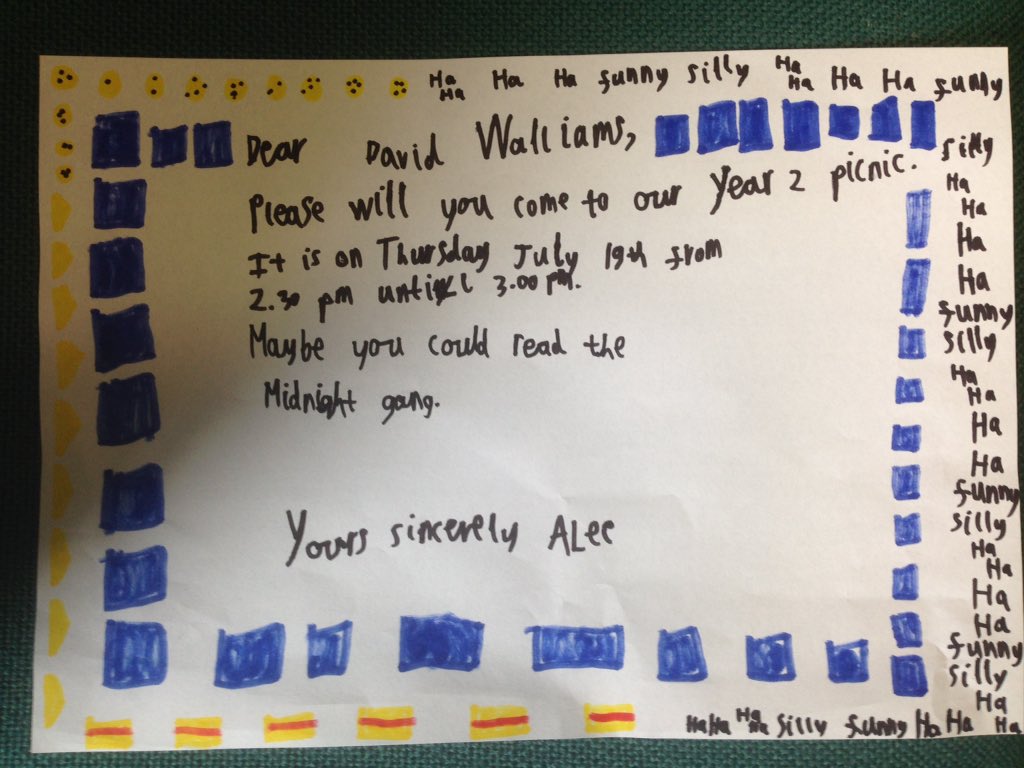 Ha Ha Ha Ha funny silly Ha Ha Ha Ha funny
Dear David Walliams,
Please will you come to our Year 2 picnic.
It is on Thursday July 19th from
2.30 pm until 3.00 pm.
Maybe you could read the
Midnight gang.
Yours sincerely Alec
silly
Ha
Ha
Ha
Ha
funny
silly
Ha
Ha
Ha
Ha
funny
silly
Ha
Ha
Ha
Ha
funny
silly
Ha
HaHa Ha Ha silly funny Ha Ha Ha